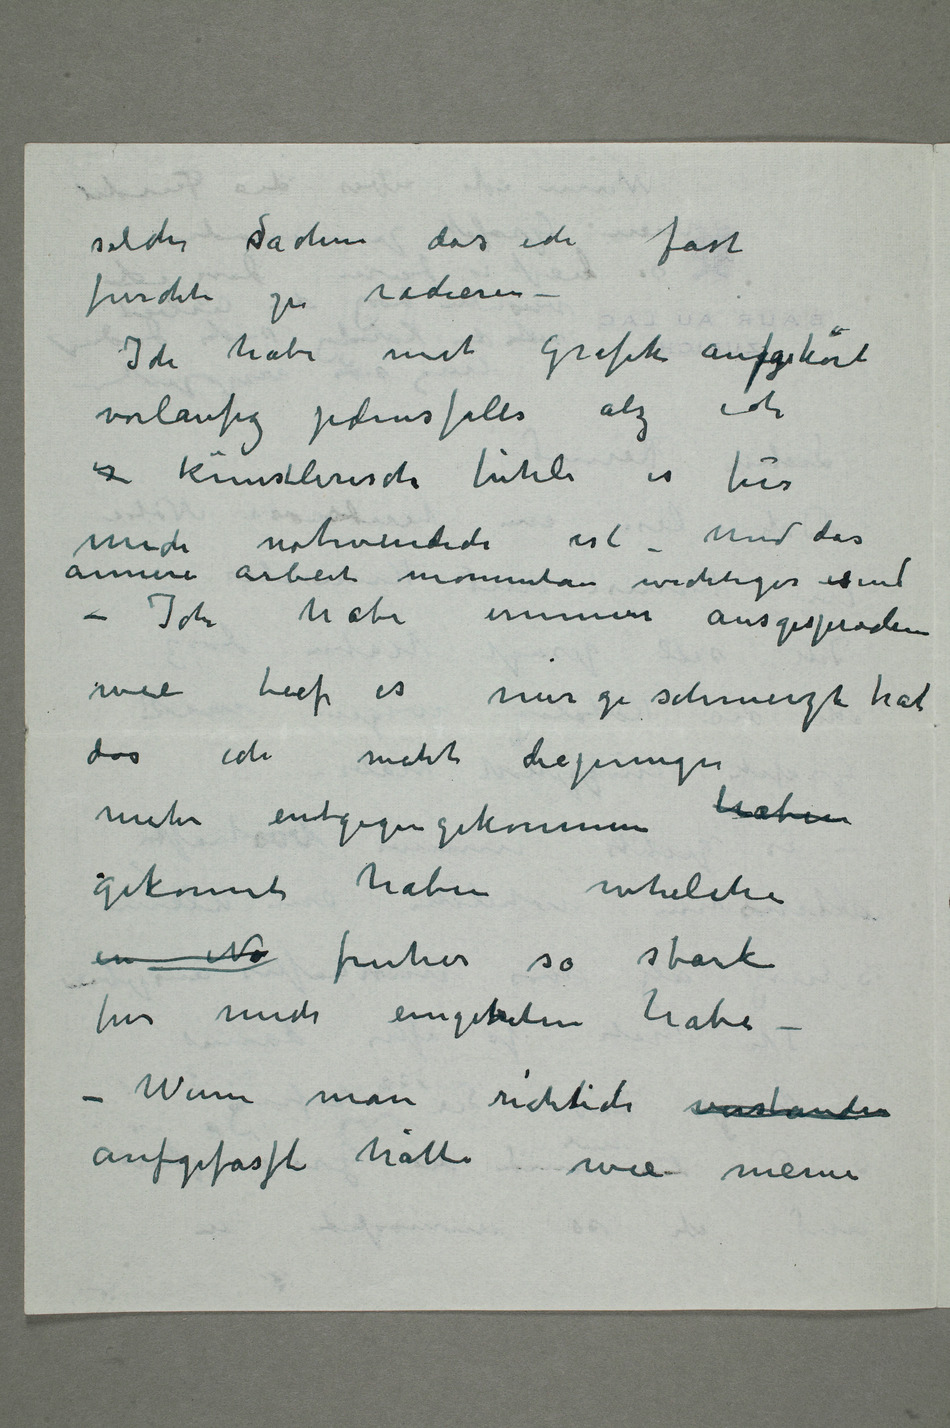 solche Sachen das ich fast
furchte zu radieren –
Ich habe mit Grafik aufgehört
vorlaufig jedensfalls alz ich
künstlerisch fühle es für
mich notwendich ist – und das
annere arbeit momentan wichtiger sind
– Ich habe immer ausgesprochen
wie tief es mir geschmerzt hat
das ich nicht diejenige
mehr entgegengekommen haben
gekonnt haben whelche
en No früher so stark
fur mich eingetreten habe –
– Wenn man richtich verstanden
aufgefasft hätte wie meine
BAUR AU LAC